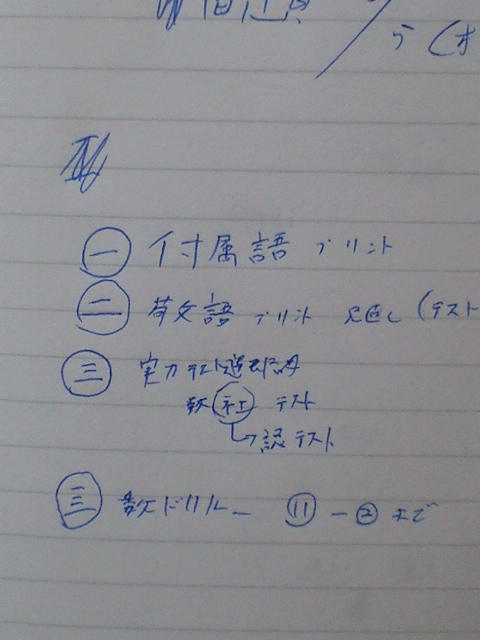 5(木
㊀ 付属語 プリント
㊁ 英文語 プリント 見直し (テスト
㊂ 実力テスト
社 テスト
認テスト
㊂ 数ドリル ⑪-②まで